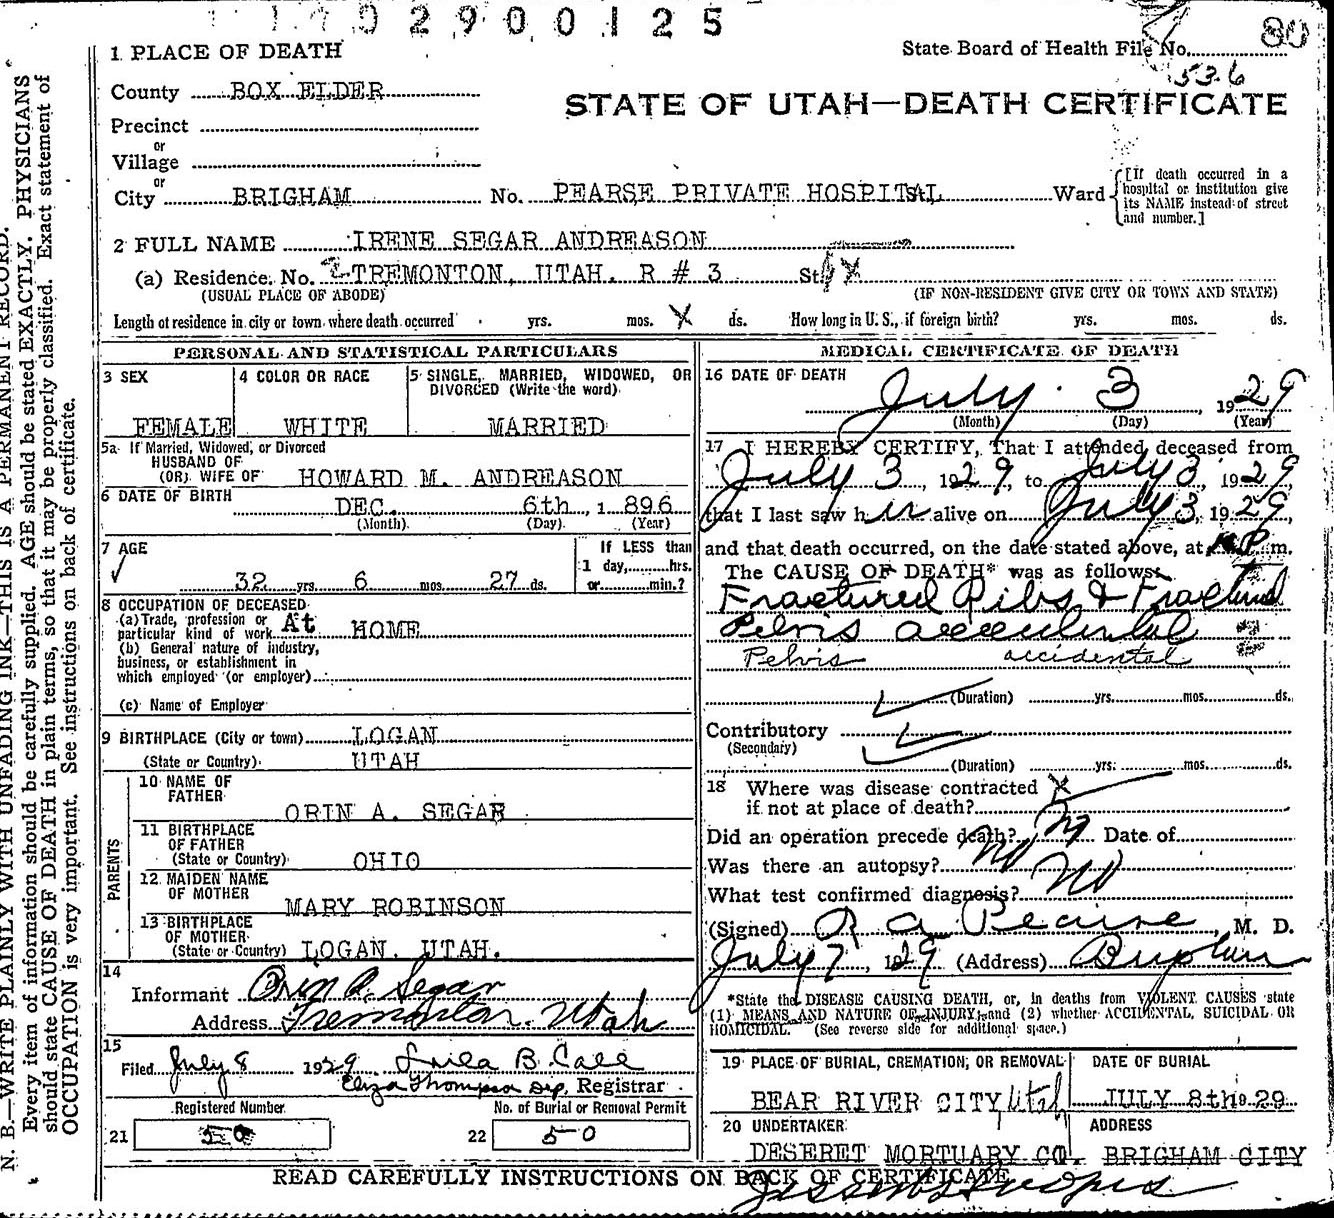 2 9 0 0 1 2 5
80
1 PLACE OF DEATH
State Board of Health File No.
536
County BOX ELDER
STATE OF UTAH—DEATH CERTIFICATE
Precinct
or
Village
or
City BRIGHAM No. PEARSE PRIVATE HOSPITAL Ward
[If death occurred in a hospital or institution give its NAME instead of street and number.]
2 FULL NAME IRENE SEGAR ANDREASON
(a) Residence. No. TREMONTON, UTAH. R # 3 St.
(USUAL PLACE OF ABODE) (IF NON-RESIDENT GIVE CITY OR TOWN AND STATE)
Length of residence in city or town where death occurred yrs. mos. X ds. How long in U. S., if foreign birth? yrs. mos. ds.
PERSONAL AND STATISTICAL PARTICULARS
3 SEX 4 COLOR OR RACE 5 SINGLE, MARRIED, WIDOWED, OR
DIVORCED (Write the word)
FEMALE WHITE MARRIED
5a If Married, Widowed, or Divorced
HUSBAND OF
(OR) WIFE OF HOWARD M. ANDREASON
6 DATE OF BIRTH DEC. 6th, 1 896
(Month) (Day) (Year)
7 AGE If LESS than
1 day, hrs.
32 yrs. 6 mos. 27 ds. or min.?
8 OCCUPATION OF DECEASED
(a) Trade, profession or
particular kind of work At HOME
(b) General nature of industry,
business, or establishment in
which employed (or employer)
(c) Name of Employer
9 BIRTHPLACE (City or town) LOGAN
(State or Country) UTAH
PARENTS
10 NAME OF
FATHER
ORIN A. SEGAR
11 BIRTHPLACE
OF FATHER
(State or Country) OHIO
12 MAIDEN NAME
OF MOTHER
MARY ROBINSON
13 BIRTHPLACE
OF MOTHER
(State or Country) LOGAN, UTAH.
14
Informant Orin A. Segar
Address Tremonton, Utah
15
Filed July 8 1929 B Call
Eliza Thompson Dep. Registrar
Registered Number No. of Burial or Removal Permit
21 50 22 50
MEDICAL CERTIFICATE OF DEATH
16 DATE OF DEATH
July 3, 1929
(Month) (Day) (Year)
17 I HEREBY CERTIFY, That I attended deceased from
July 3, 1929, to July 3, 1929
that I last saw her alive on July 3, 1929,
and that death occurred, on the date stated above, at P m.
The CAUSE OF DEATH* was as follows:
Fractured Ribs & Fractured
Pelvis accidental
Pelvis accidental
(Duration) yrs. mos. ds.
Contributory
(Secondary)
(Duration) yrs. mos. ds.
18 Where was disease contracted X
if not at place of death?
Did an operation precede death? No Date of
Was there an autopsy? No
What test confirmed diagnosis? No
(Signed) R A Pearse, M. D.
July 7, 1929 (Address) Brigham
*State the DISEASE CAUSING DEATH, or, in deaths from VIOLENT CAUSES state
(1) MEANS AND NATURE OF INJURY, and (2) whether ACCIDENTAL, SUICIDAL OR
HOMICIDAL. (See reverse side for additional space.)
19 PLACE OF BURIAL, CREMATION, OR REMOVAL DATE OF BURIAL
BEAR RIVER CITY Utah JULY 8th 29
20 UNDERTAKER ADDRESS
DESERET MORTUARY CO. BRIGHAM CITY
READ CAREFULLY INSTRUCTIONS ON BACK OF CERTIFICATE
N. B.—WRITE PLAINLY WITH UNFADING INK—THIS IS A PERMANENT RECORD.
Every item of information should be carefully supplied. AGE should be stated EXACTLY. PHYSICIANS
should state CAUSE OF DEATH in plain terms, so that it may be properly classified. Exact statement of
OCCUPATION is very important. See instructions on back of certificate.